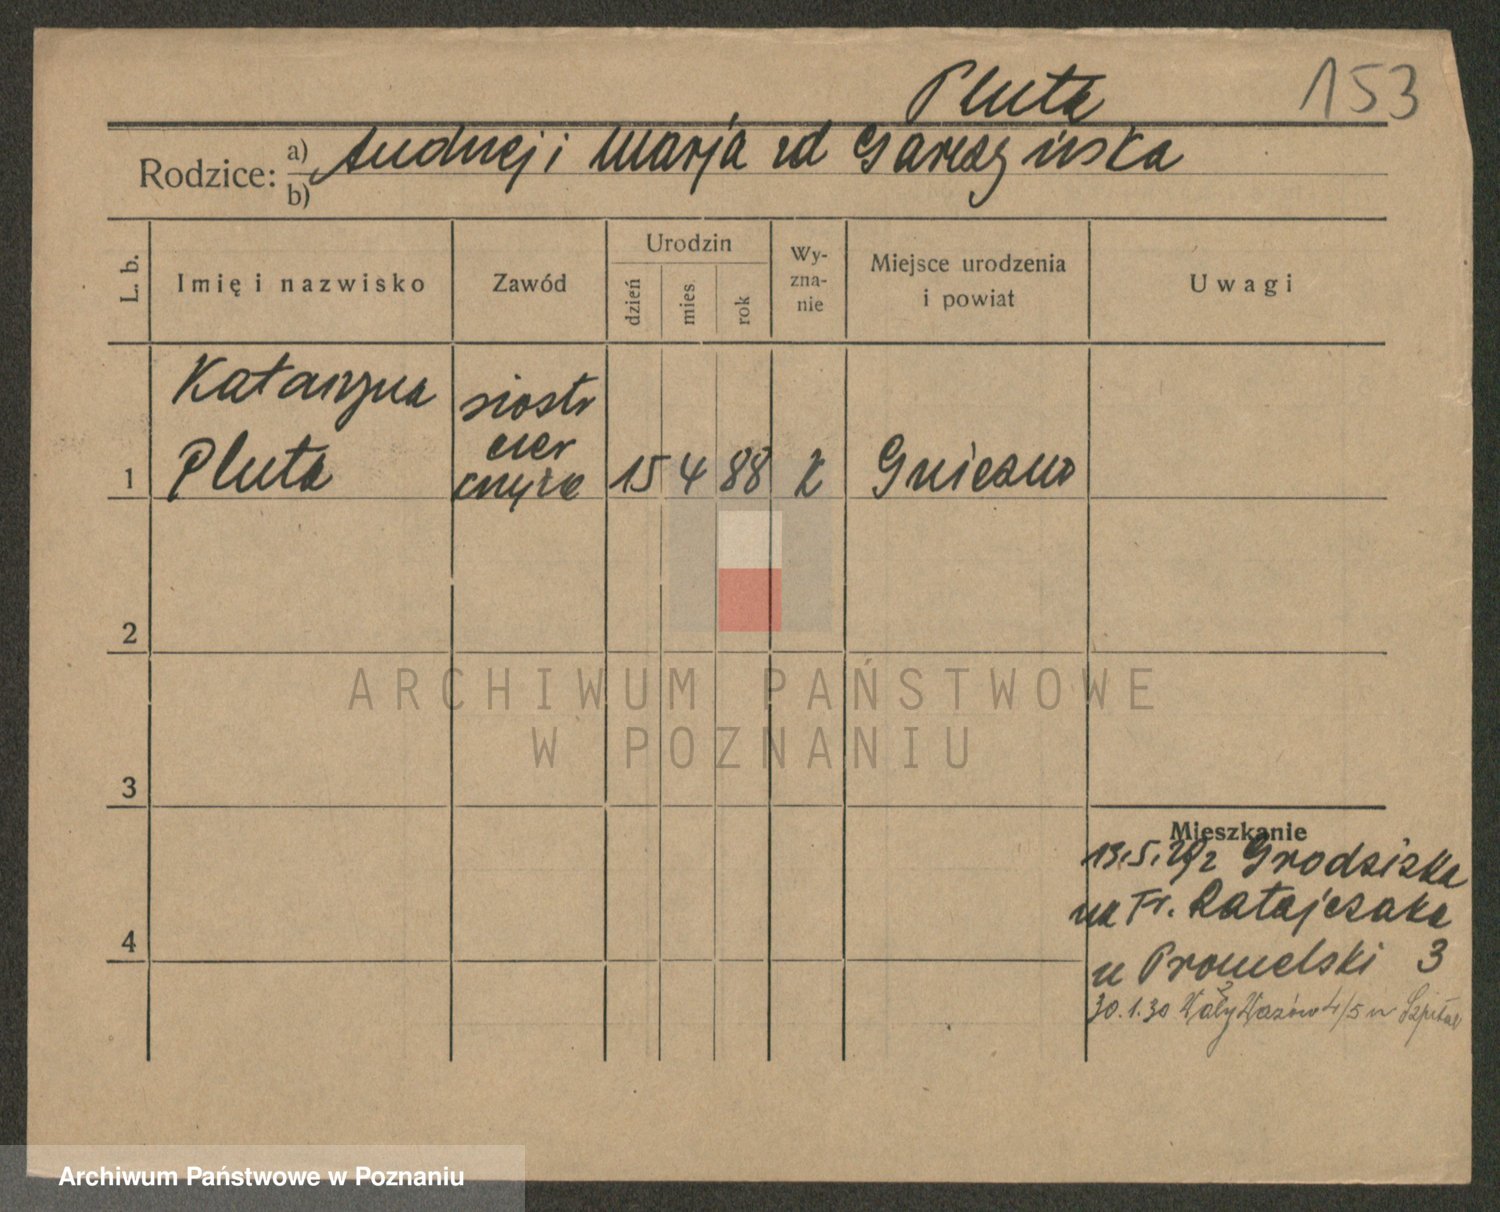 Pluta 153
Rodzice: a) Andrzej i Marja zd Garczyńska
b)
L. b. Imię i nazwisko Zawód Urodzin dzień mies rok Wy-zna-nie Miejsce urodzenia i powiat Uwagi
Katarzyna siostr
czer
1 Pluta cnyże 15 4 88 k Gniezno
2
ARCHIWUM PAŃSTWOWE
W POZNANIU
3
Mieszkanie
Grodziska
na Fr. Ratajczaka
4
u Promelski 3
30.1.30 Wały Wazów 4/5 w Szpital
Archiwum Państwowe w Poznaniu